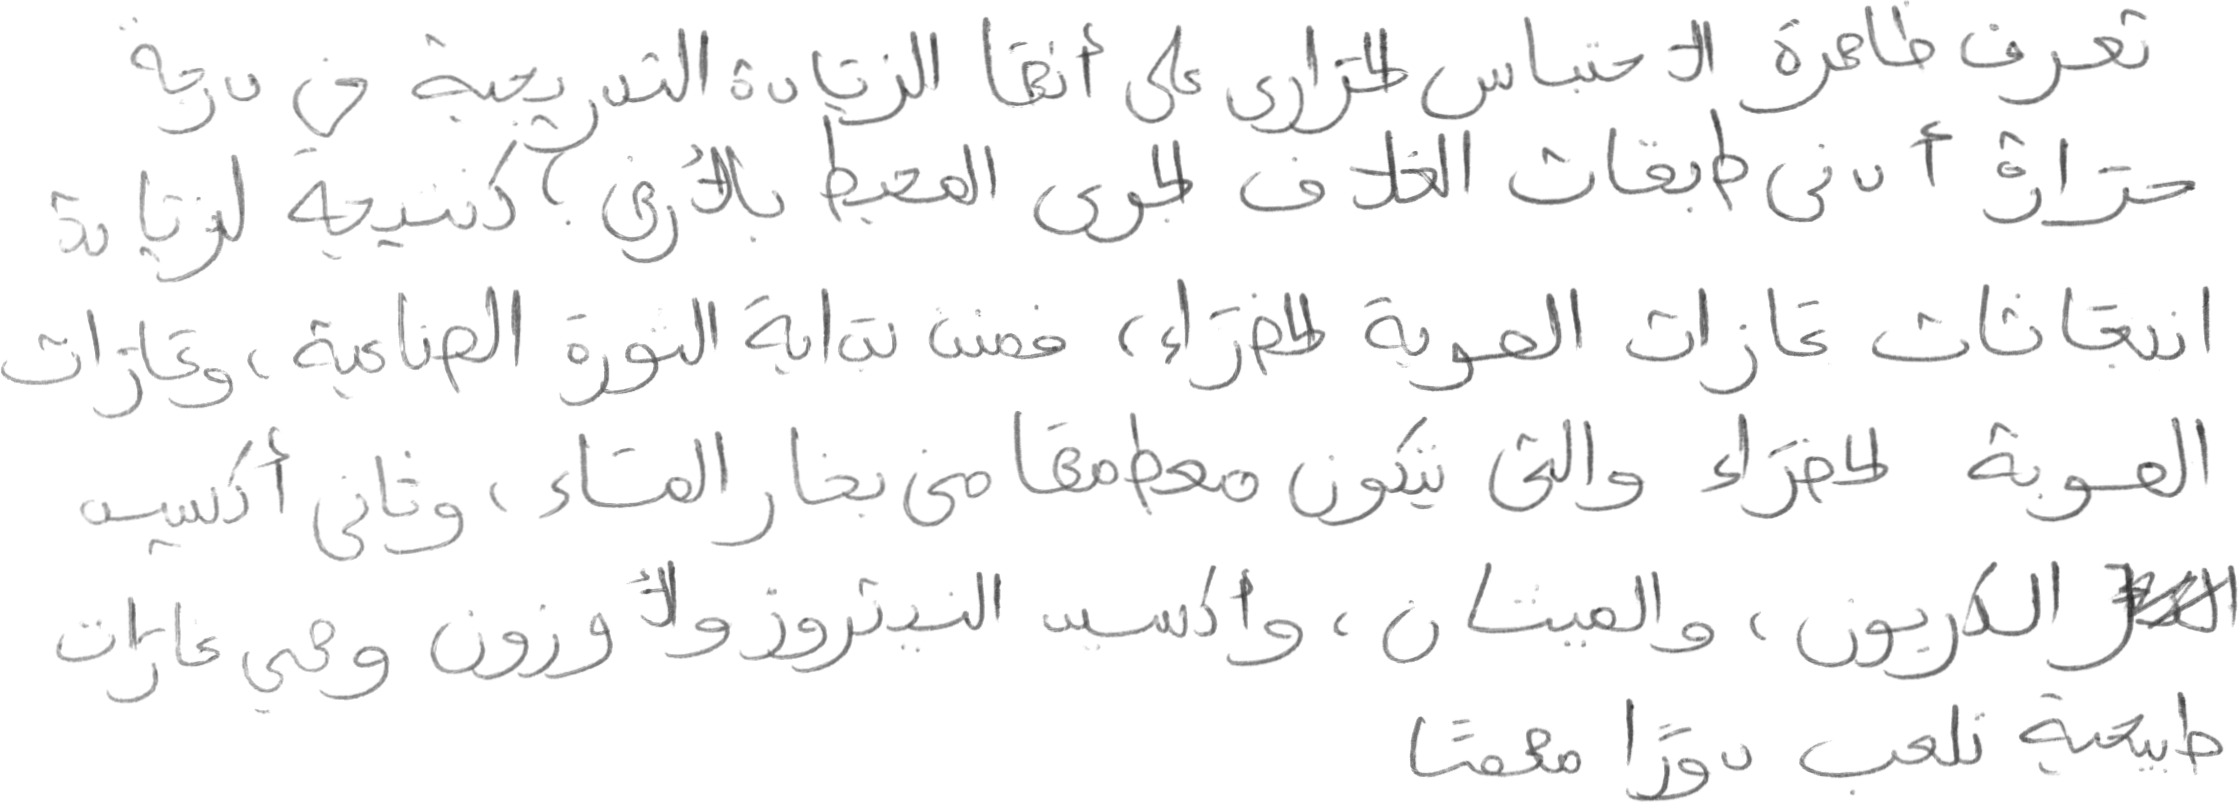 تعرف ظاهرة الاحتباس الحراري على أنها الزيادة التدريجية في درجة
حرارة أدنى طبقات الغلاف الجوى المحيط بالأرض؛ كنتيجة لزيادة
انبعاثات غازات الصوبة الخضراء، فمنذ بداية الثورة الصناعية، وغازات
الصوبة الخضراء والتى يتكون معظمها من بخار الماء، وثانى أكسيد
الكربون، والميثان، وأكسيد النيتروز والأوزون وهي غازات
طبيعية تلعب دورًا مهمًا